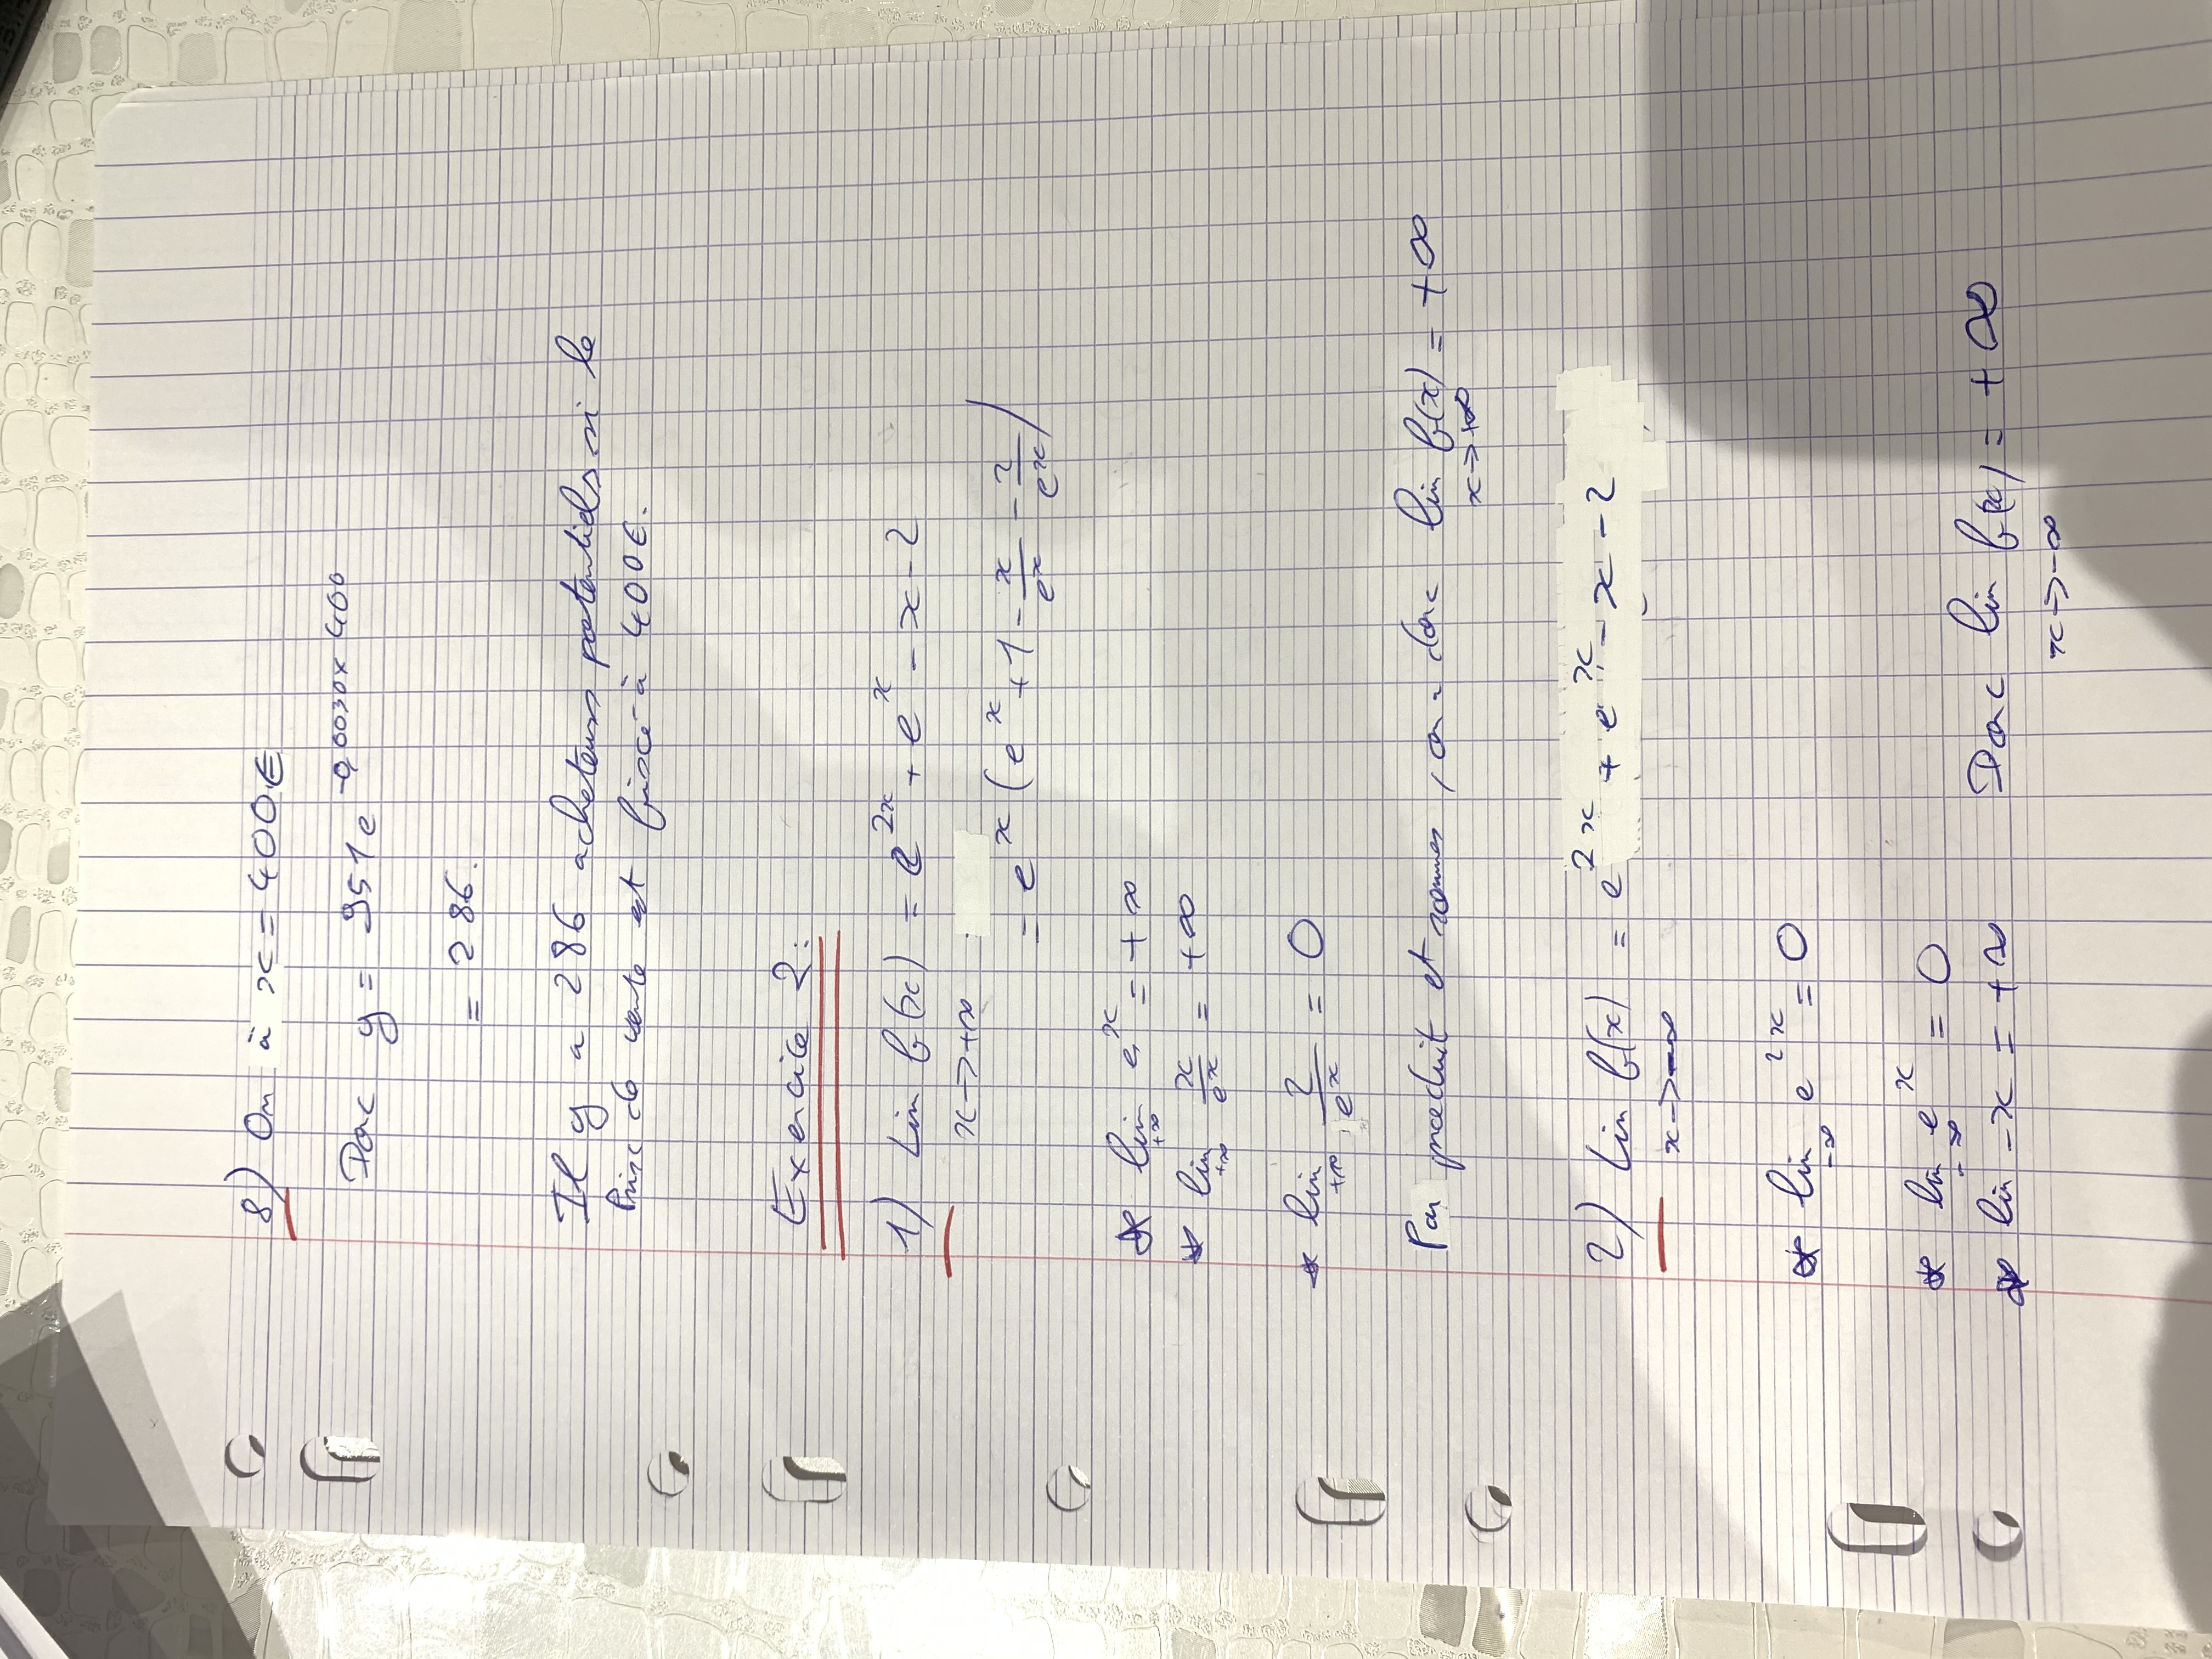 8) On à x = 400€
Donc y = 951e^{-0,0030x 400}
= 286.
Il y a 286 acheteurs potentiels si le
Prix de vente est fixé à 400€.
Exercice 2:
1) Lim f(x) = e^{2x} + e^x - x - 2
x→+∞
= e^x (e^x + 1 - x/e^x - 2/e^x)
* lim e^x = +∞
+∞
* lim x/e^x = +∞
+∞
* lim 2/e^x = 0
+∞
Par produit et sommes, on a donc lim f(x) = +∞
x→+∞
2) Lim f(x) = e^{2x} + e^x - x - 2
x→-∞
* lim e^{2x} = 0
-∞
* lim e^x = 0
-∞
* lim -x = +∞ Donc lim f(x) = +∞
x→-∞